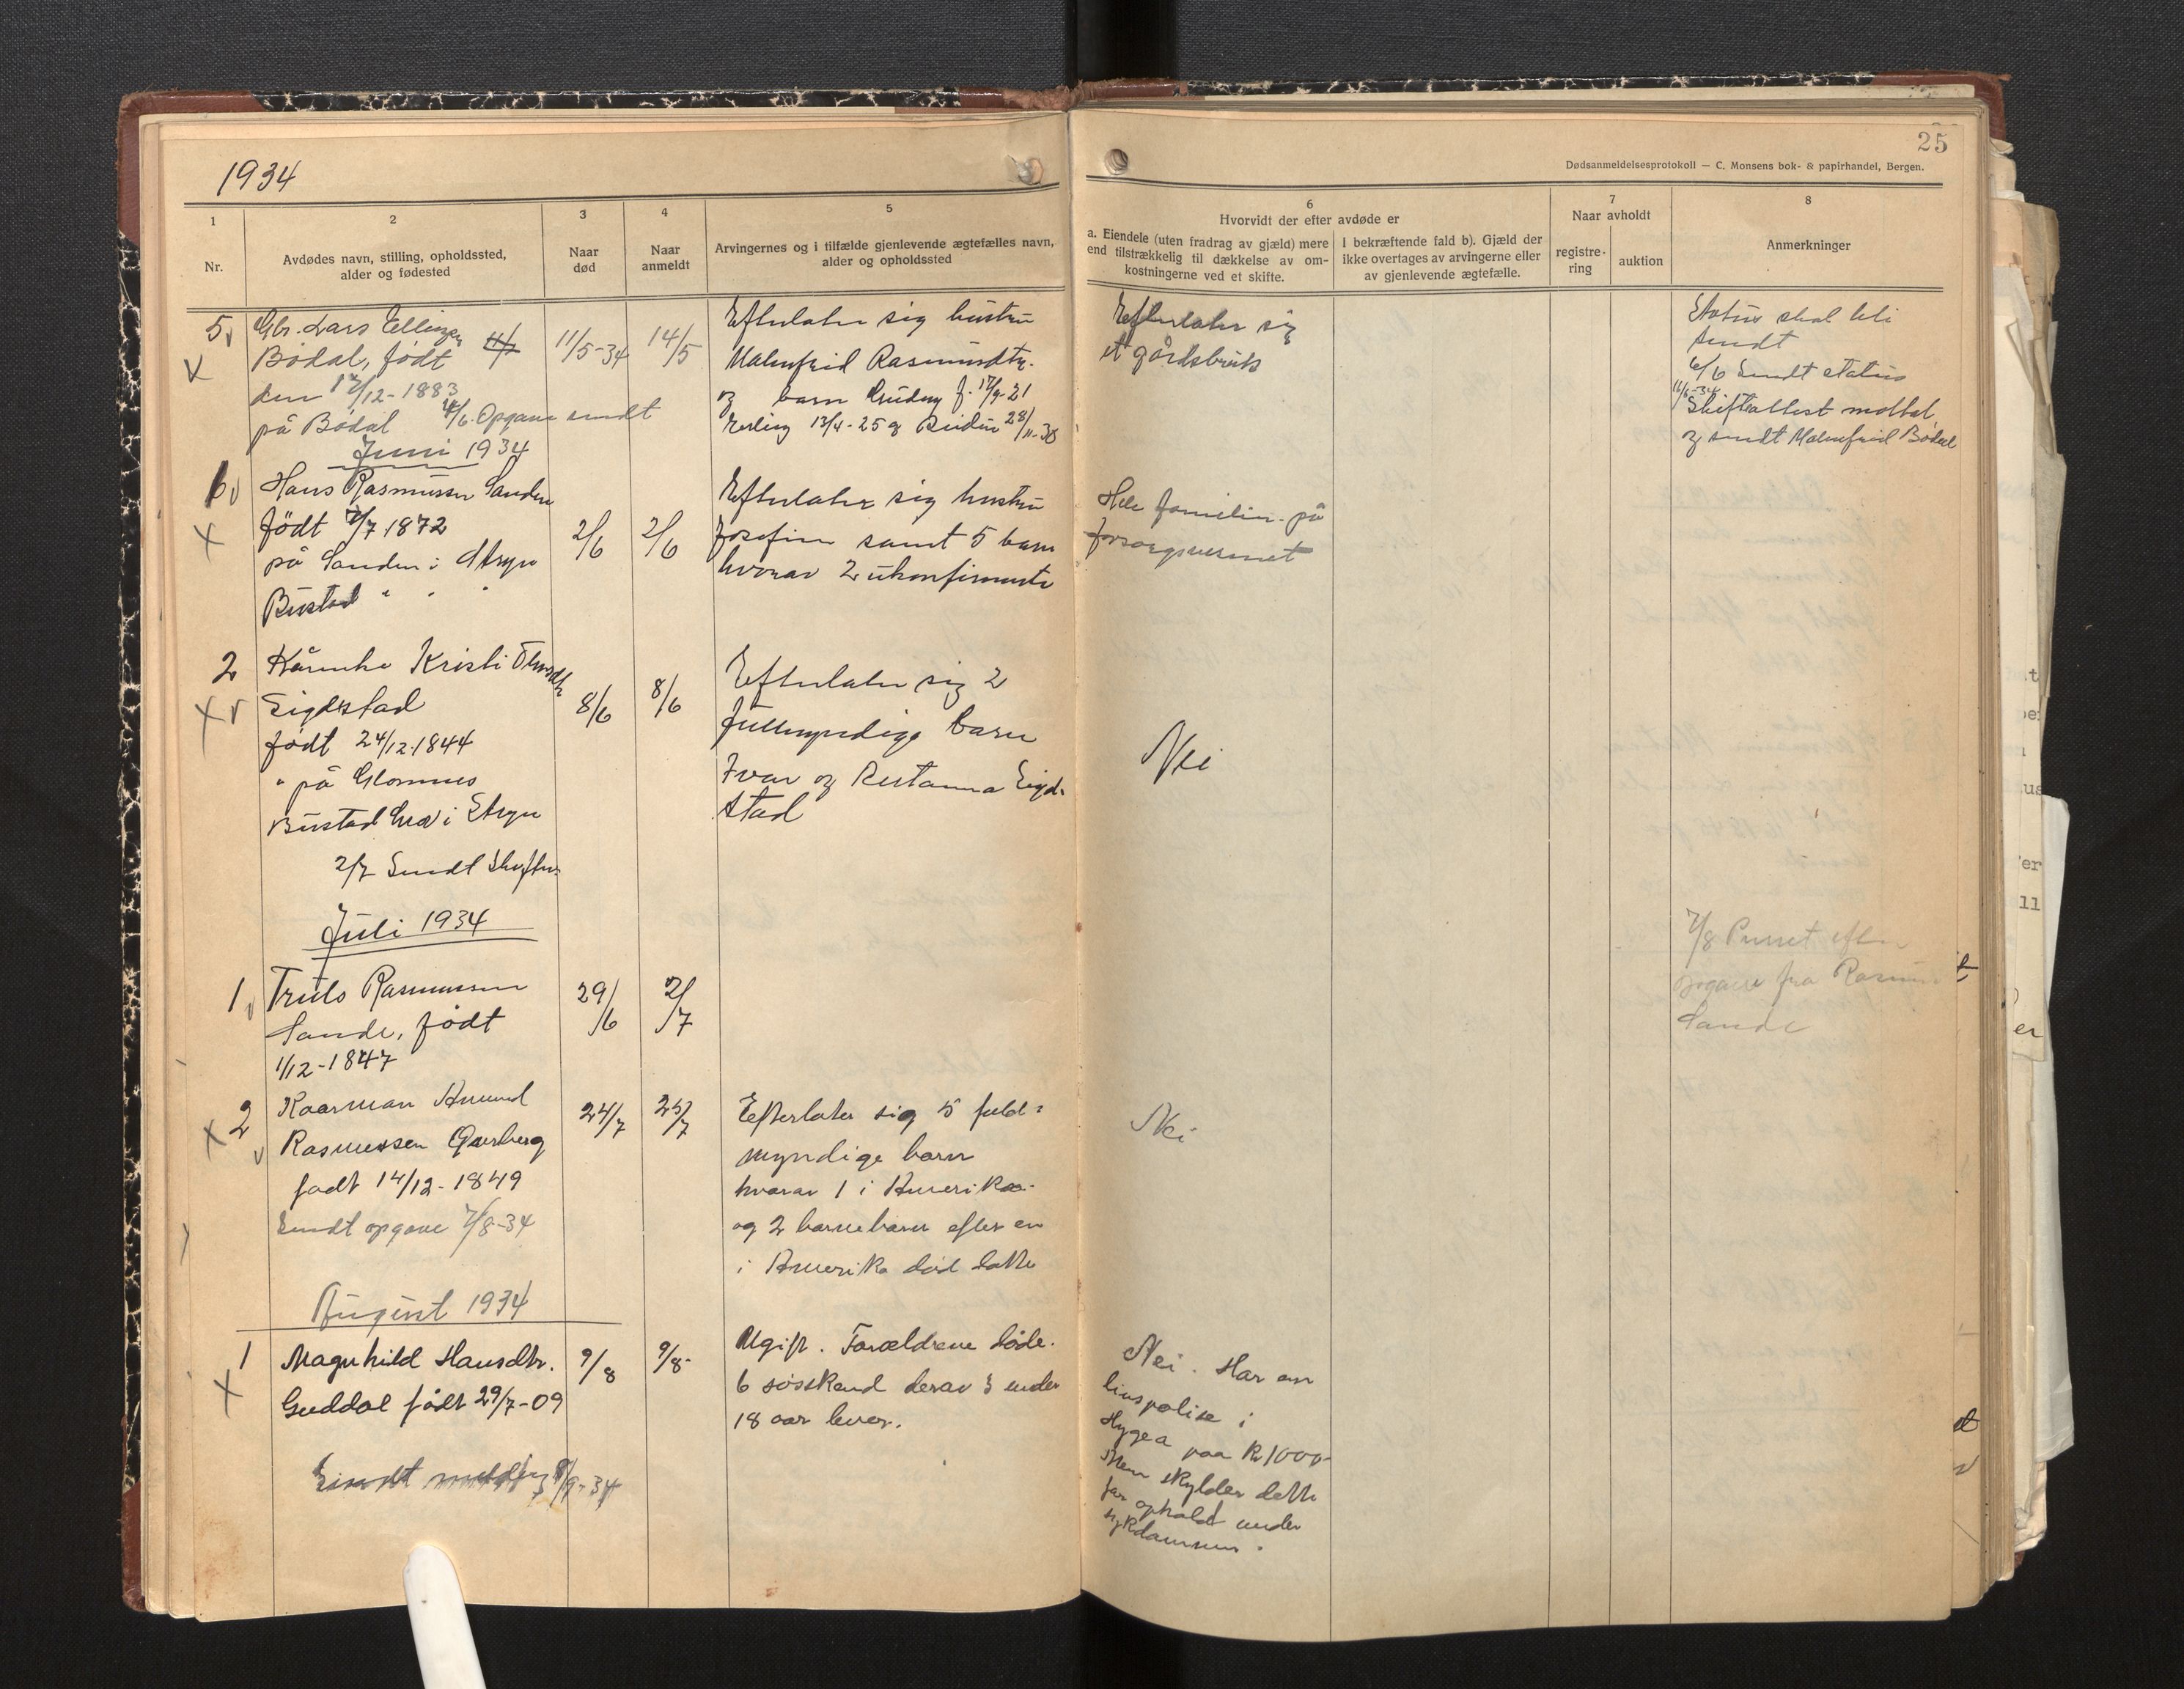 1934
25
Dødsanmeldelsesprotokoll — C. Monsens bok- & papirhandel, Bergen.
1
2
3
4
5
6
7
8
Nr.
Avdødes navn, stilling, opholdssted,
alder og fødested
Naar
død
Naar
anmeldt
Arvingernes og i tilfælde gjenlevende ægtefælles navn,
alder og opholdssted
Hvorvidt der efter avdøde er
a. Eiendele (uten fradrag av gjæld) mere
end tilstrækkelig til dækkelse av om-
kostningerne ved et skifte.
I bekræftende fald b). Gjæld der
ikke overtages av arvingerne eller
av gjenlevende ægtefælle.
Naar avholdt
registre-
ring
auktion
Anmerkninger
5
Gbr. Lars Ellingsen
Bødal, født
den 12/12-1883
på Bødal 4/6. Opgave sendt
11/5-34
14/5
Efterlater sig hustru
Malmfrid Rasmusdtr.
og barn
Erling 13/4-25 og
Efterlater sig
et gårdsbruk
Status skal bli
sendt
6/6 Sendt status
Skifteattest mottat
og sendt Malmfrid Bødal
Juni 1934
X
Hans Rasmussen Sanden
født 7/7 1872
på Sanden i Stryn
Bustad " " "
2/6
2/6
Efterlater sig hustru
Josefine samt 5 barn
hvorav 2 ukonfirmerte
Hele familien på
forsorgsvesenet
2
Kårenke Kristi
Eigdstad
født 24/12.1844
" på Glomnes
Bustad i Stryn
2/7 Sendt
8/6
8/6
Efterlater sig 2
fullmyndige barn
Ivar og Eigd-
stad
Nei
Juli 1934
1
Truls Rasmussen
Sande, født
1/12-1847
29/6
2/7
7/8 Purret efter
opgave fra
Sande
X 2
Kaarman Amund
Rasmussen Gjerberg
født 14/12-1849
Sendt opgave 7/8-34
24/7
25/7
Efterlater sig 5 fuld-
myndige barn
hvorav 1 i Amerika
og 2 barnebarn efter en
i Amerika død datter
Nei
August 1934
1
X
Magnhild Hansdtr.
Guddal født 29/7-09
Sendt melding 8/9-34
9/8
9/8
Ugift. Forældrene døde.
6 søsskend derav 3 under
18 aar lever.
Nei. Har en
livspolise i
Hygea paa Kr 1000-
Men skylder dette
for ophold under
sykdommen.